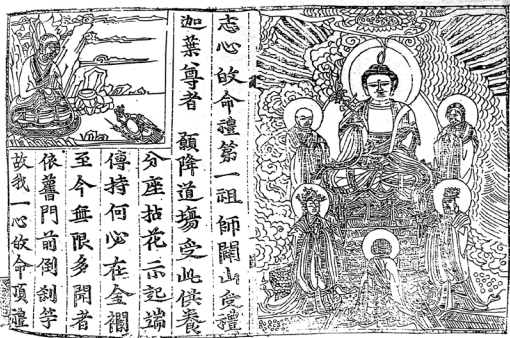 志心皈命禮第一祖師山受禮
迦葉尊者　願降道場受此供養
分座拈花示起端
傳持何必在金襴
至今無限多聞者
依舊門前倒剎竿
故我一心皈命頂禮